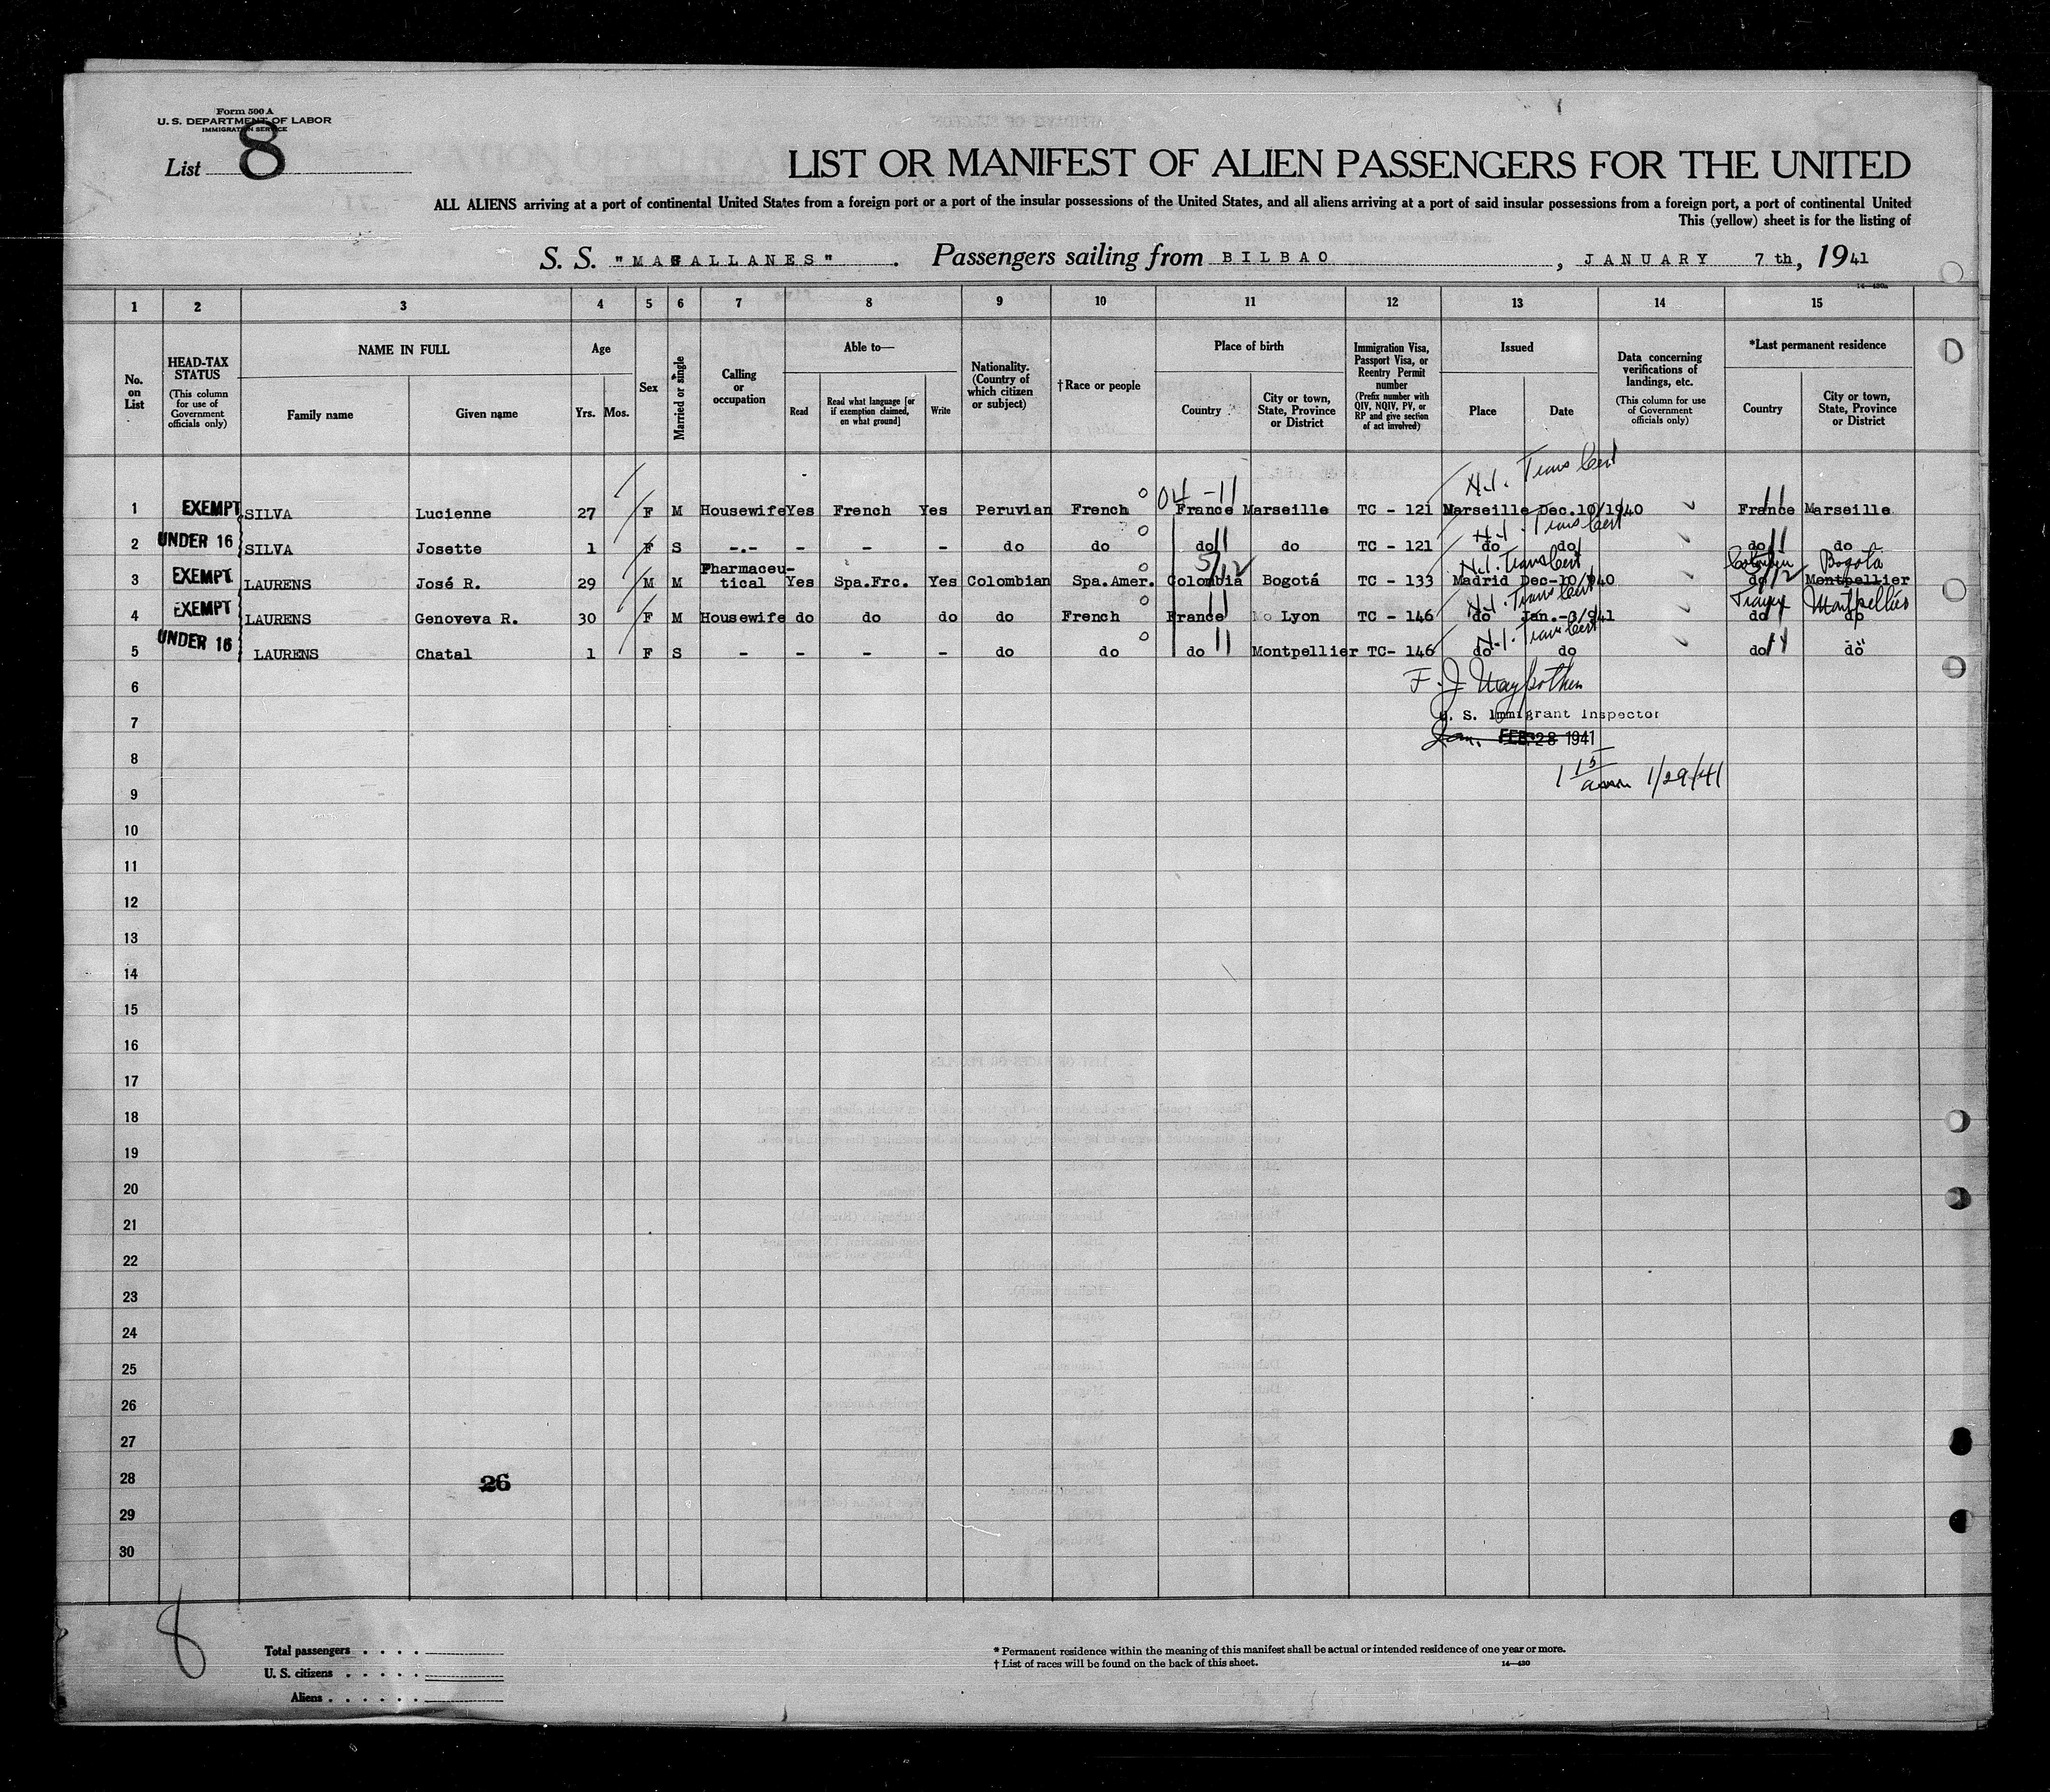 Form 500 A
U. S. DEPARTMENT OF LABOR
IMMIGRATION SERVICE
List 8
LIST OR MANIFEST OF ALIEN PASSENGERS FOR THE UNITED
ALL ALIENS arriving at a port of continental United States from a foreign port or a port of the insular possessions of the United States, and all aliens arriving at a port of said insular possessions from a foreign port, a port of continental United
This (yellow) sheet is for the listing of
S. S. "MAGALLANES". Passengers sailing from BILBAO, JANUARY 7 th, 1941
14—430a
1 2 3 4 5 6 7 8 9 10 11 12 13 14 15
No. on List
HEAD-TAX STATUS (This column for use of Government officials only)
NAME IN FULL
Family name Given name
Age
Yrs. Mos.
Sex
Married or single
Calling or occupation
Able to—
Read Read what language [or if exemption claimed, on what ground] Write
Nationality. (Country of which citizen or subject)
†Race or people
Place of birth
Country City or town, State, Province or District
Immigration Visa, Passport Visa, or Reentry Permit number (Prefix number with QIV, NQIV, PV, or RP and give section of act involved)
Issued
Place Date
Data concerning verifications of landings, etc. (This column for use of Government officials only)
*Last permanent residence
Country City or town, State, Province or District
N.I. Trans Cert
04 -11 11
1 EXEMPT SILVA Lucienne 27 F M Housewife Yes French Yes Peruvian French France Marseille TC - 121 Marseille Dec.10/1940 France Marseille
N.I. Trans Cert
2 UNDER 16 SILVA Josette 1 F S -.- - - - do do do 11 do TC - 121 do do do 11 do
N.I. Trans Cert
5/12 Colombia 5/12 Bogotá
3 EXEMPT LAURENS José R. 29 M M Pharmaceu-tical Yes Spa.Frc. Yes Colombian Spa.Amer. Colombia Bogotá TC - 133 Madrid Dec-10/940 do Montpellier
N.I. Trans Cert
Montpellier
4 EXEMPT LAURENS Genoveva R. 30 F M Housewife do do do do French France 11 Lyon TC - 146 do Jan.-3/941 do do
N.I. Trans Cert
5 UNDER 16 LAURENS Chatal 1 F S - - - - do do do 11 Montpellier TC- 146 do do do 11 do
6
7 U. S. Immigrant Inspector
Jan. FEB 28 1941
8
1 15 am 1/29/41
9
10
11
12
13
14
15
16
17
18
19
20
21
22
23
24
25
26
27
28 26
29
30
8
Total passengers . . . .
U. S. citizens . . . . .
Aliens . . . . . .
* Permanent residence within the meaning of this manifest shall be actual or intended residence of one year or more.
† List of races will be found on the back of this sheet.
14—430